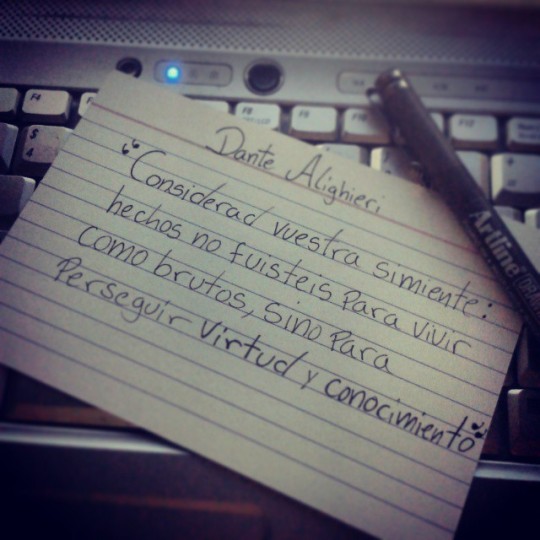 Dante Alighieri
"Considerad vuestra simiente:
hechos no fuisteis para vivir
como brutos, sino para
Perseguir virtud y conocimiento"
Artline
F4
$
4